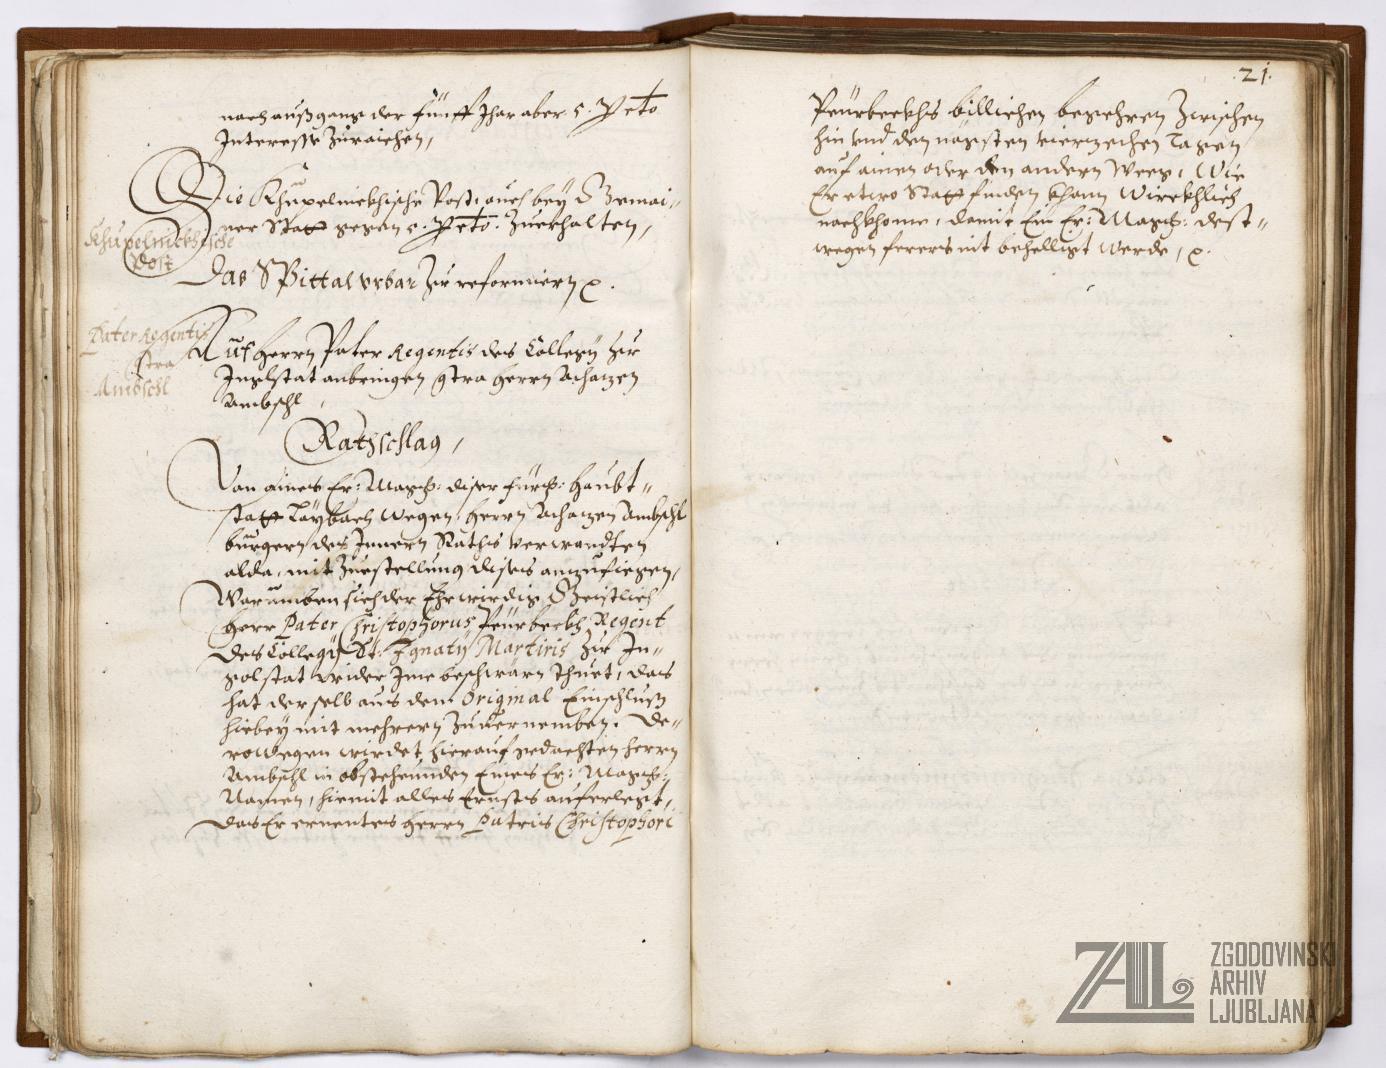 nach außgang der fünff Jhar aber 5. Pr cto
Interesse Zuraichen,
Die Khupelnickhische Post auch bey Gemai-
ner Statt gegen 5. Pr cto. Zuerhalten,
Khupelnickhische
Post
Das Spittal vrbar Zu reformiern
Pater Regentis
ctra
Ambschl
Auf Herrn Pater Regentis des Collegij Zu
Inglstat anbringen ctra Herrn Achazen
Ambschl
Rathschlag,
Von aines Er: Magist: diser fürst: Haubt-
statt Laybach wegen, Herrn Achazen Ambschl
burgern des Innern Raths verwandten
alda, mit Zuestellung dises anzufiegen,
Warumben sich der Ehrwirdig Geistlich
Herr Pater Christophorus Peürbeckh Regent
des Collegij St: Ignatij Martiris Zu In-
golstat wider Ime beschwärn thuet, das
hat derselb aus dem Original Einschluß
hiebey mit mehrern Zuuernemben. De-
rowegen wirdet hierauf gedachten Herrn
Ambschl in obstehunden Eines Er: Magist:
Namen, hiemit alles Ernsts auferlegt,
das Er ernentes Herrn Patris Christophori
21.
Peürbeckhs billichen begehren Zwischen
hin vnd den nägsten vierzechen Tagen
auf ainen oder den andern Weeg, Wie
Er etwo Statt finden khann Würckhlich
nachkhome, damit Ein Er: Magist: dest-
wegen ferers nit behelligt werde,
ZAL
ZGODOVINSKI
ARHIV
LJUBLJANA